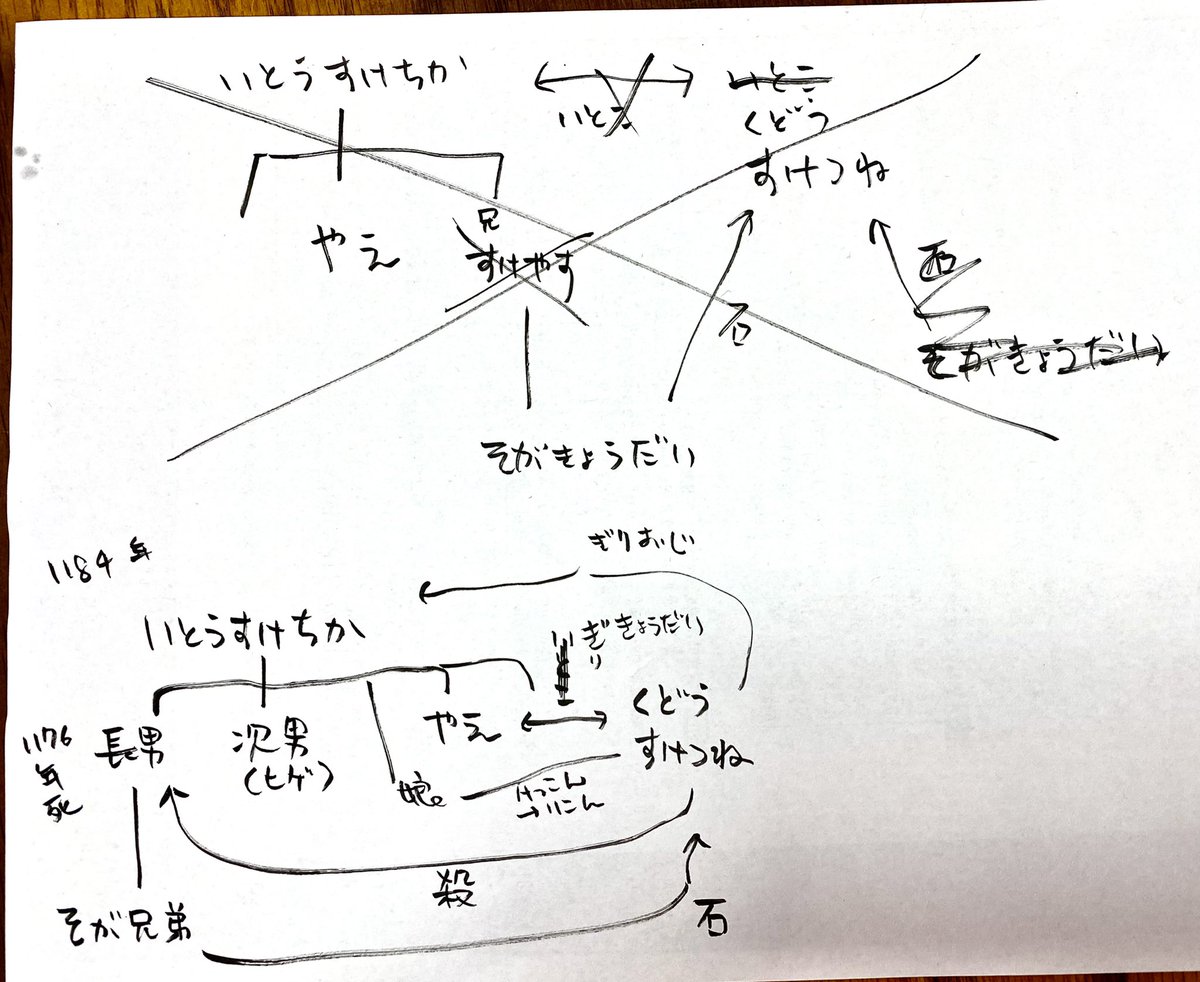 いとうすけちか
いとこ
いとこ
くどう
すけつね
やえ
兄
すけやす
石
石
そがきょうだい
そがきょうだい
1184年
ぎりおじ
いとうすけちか
ぎり
きょうだい
1176
年
死
長男
次男
(ヒゲ)
やえ
くどう
すけつね
娘。
けっこん
→りこん
殺
そが兄弟
石